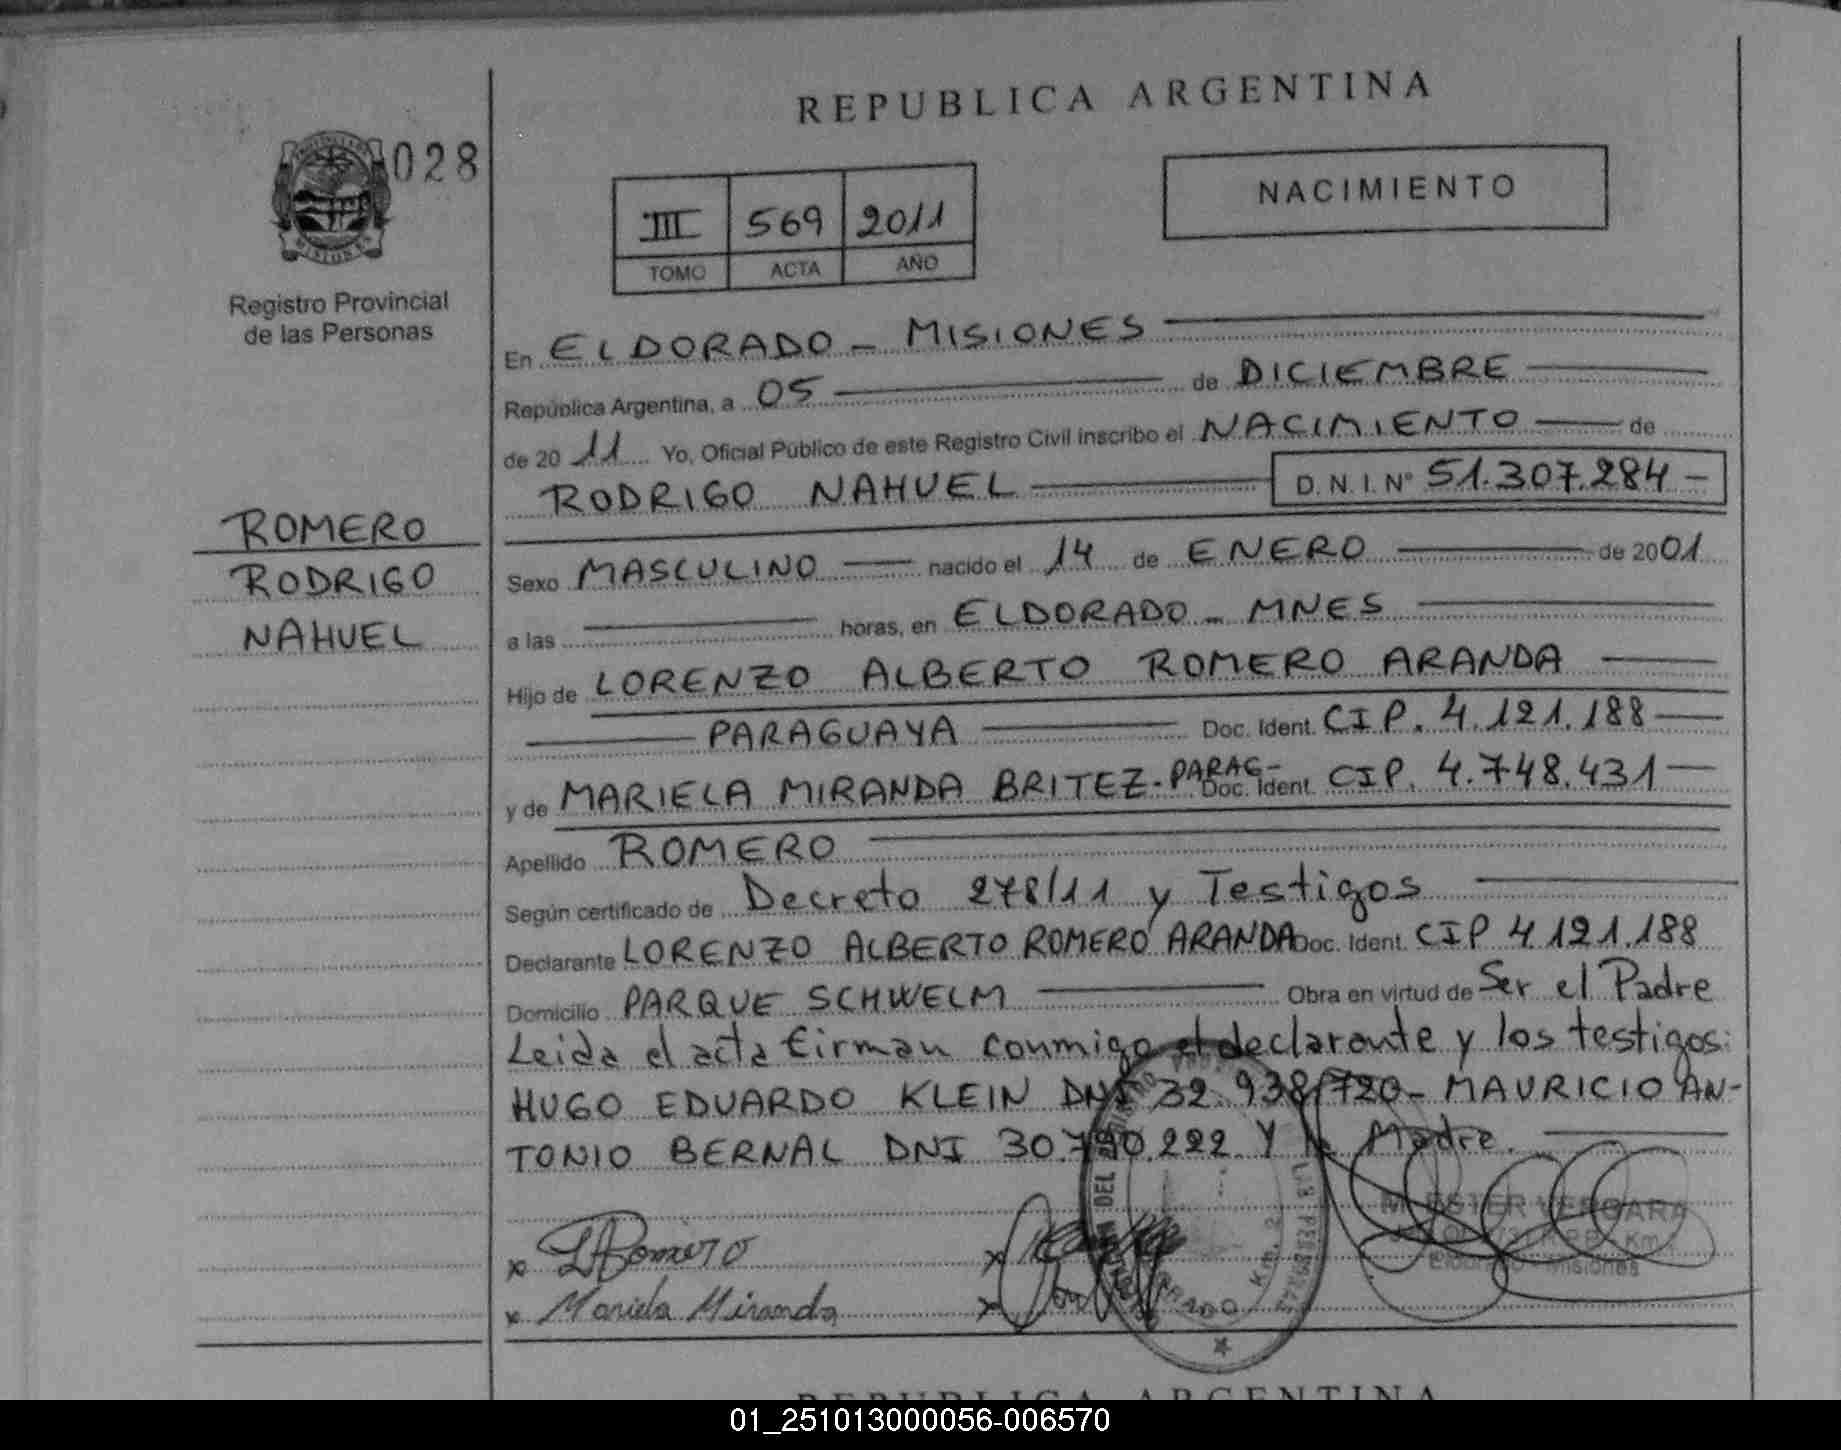 REPUBLICA ARGENTINA
028
NACIMIENTO
III 569 2011
TOMO ACTA AÑO
Registro Provincial
de las Personas
En ELDORADO - MISIONES
República Argentina, a 05 de DICIEMBRE
de 2011 Yo, Oficial Público de este Registro Civil inscribo el NACIMIENTO de
RODRIGO NAHUEL D.N.I.Nº 51.307.284-
ROMERO
RODRIGO
NAHUEL
Sexo MASCULINO nacido el 14 de ENERO de 2001
a las horas, en ELDORADO - MNES
Hijo de LORENZO ALBERTO ROMERO ARANDA
PARAGUAYA Doc. Ident. CIP. 4.121.188
y de MARIELA MIRANDA BRITEZ-PARAG- Doc. Ident. CIP. 4.748.431
Apellido ROMERO
Según certificado de Decreto 278/11 y Testigos
Declarante LORENZO ALBERTO ROMERO ARANDA Doc. Ident. CIP 4.121.188
Domicilio PARQUE SCHWELM Obra en virtud de Ser el Padre
Leida el acta firman conmigo el declarante y los testigos:
HUGO EDUARDO KLEIN DNI 32.938.720- MAURICIO AN-
TONIO BERNAL DNI 30.790.222 Y la Madre.
M. ESTER VERGARA
Eldorado - Misiones
x LARomero x
x Mariela Miranda x
REPUBLICA ARGENTINA
01_251013000056-006570